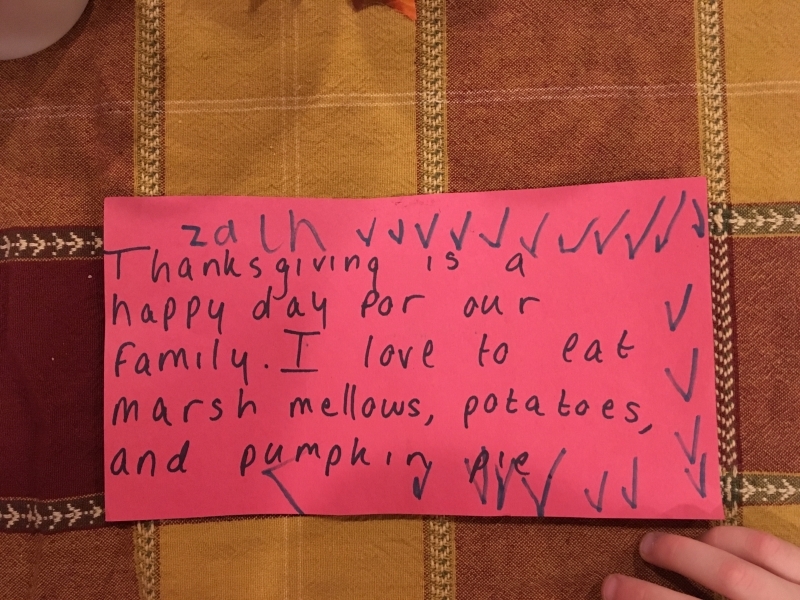 zach
Thanksgiving is a
happy day for our
family. I love to eat
marsh mellows, potatoes,
and pumpkin pie